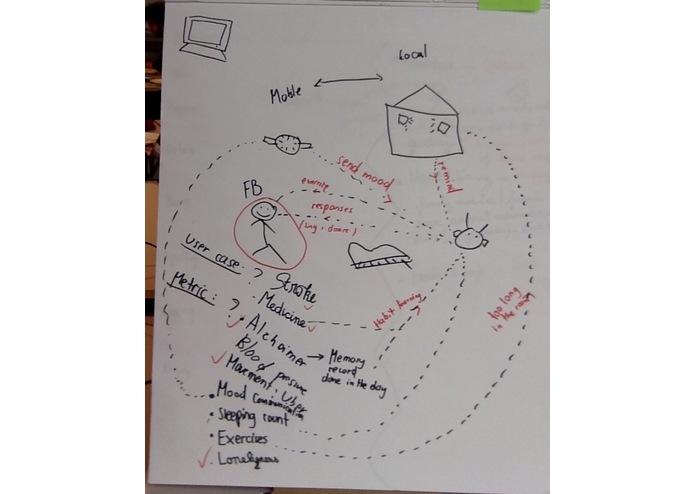 Local
Mobile
send mood
remind
FB
exercise
responses
(sing, dance)
User case: ? Stroke
Metric: ? Medicine
Habit learning
too long
in the room
• Alzheimer
Blood pressure
→ Memory
record
done in the day
Movment: Uber
• Mood Communication
• Sleeping count
• Exercises
• Loneliness